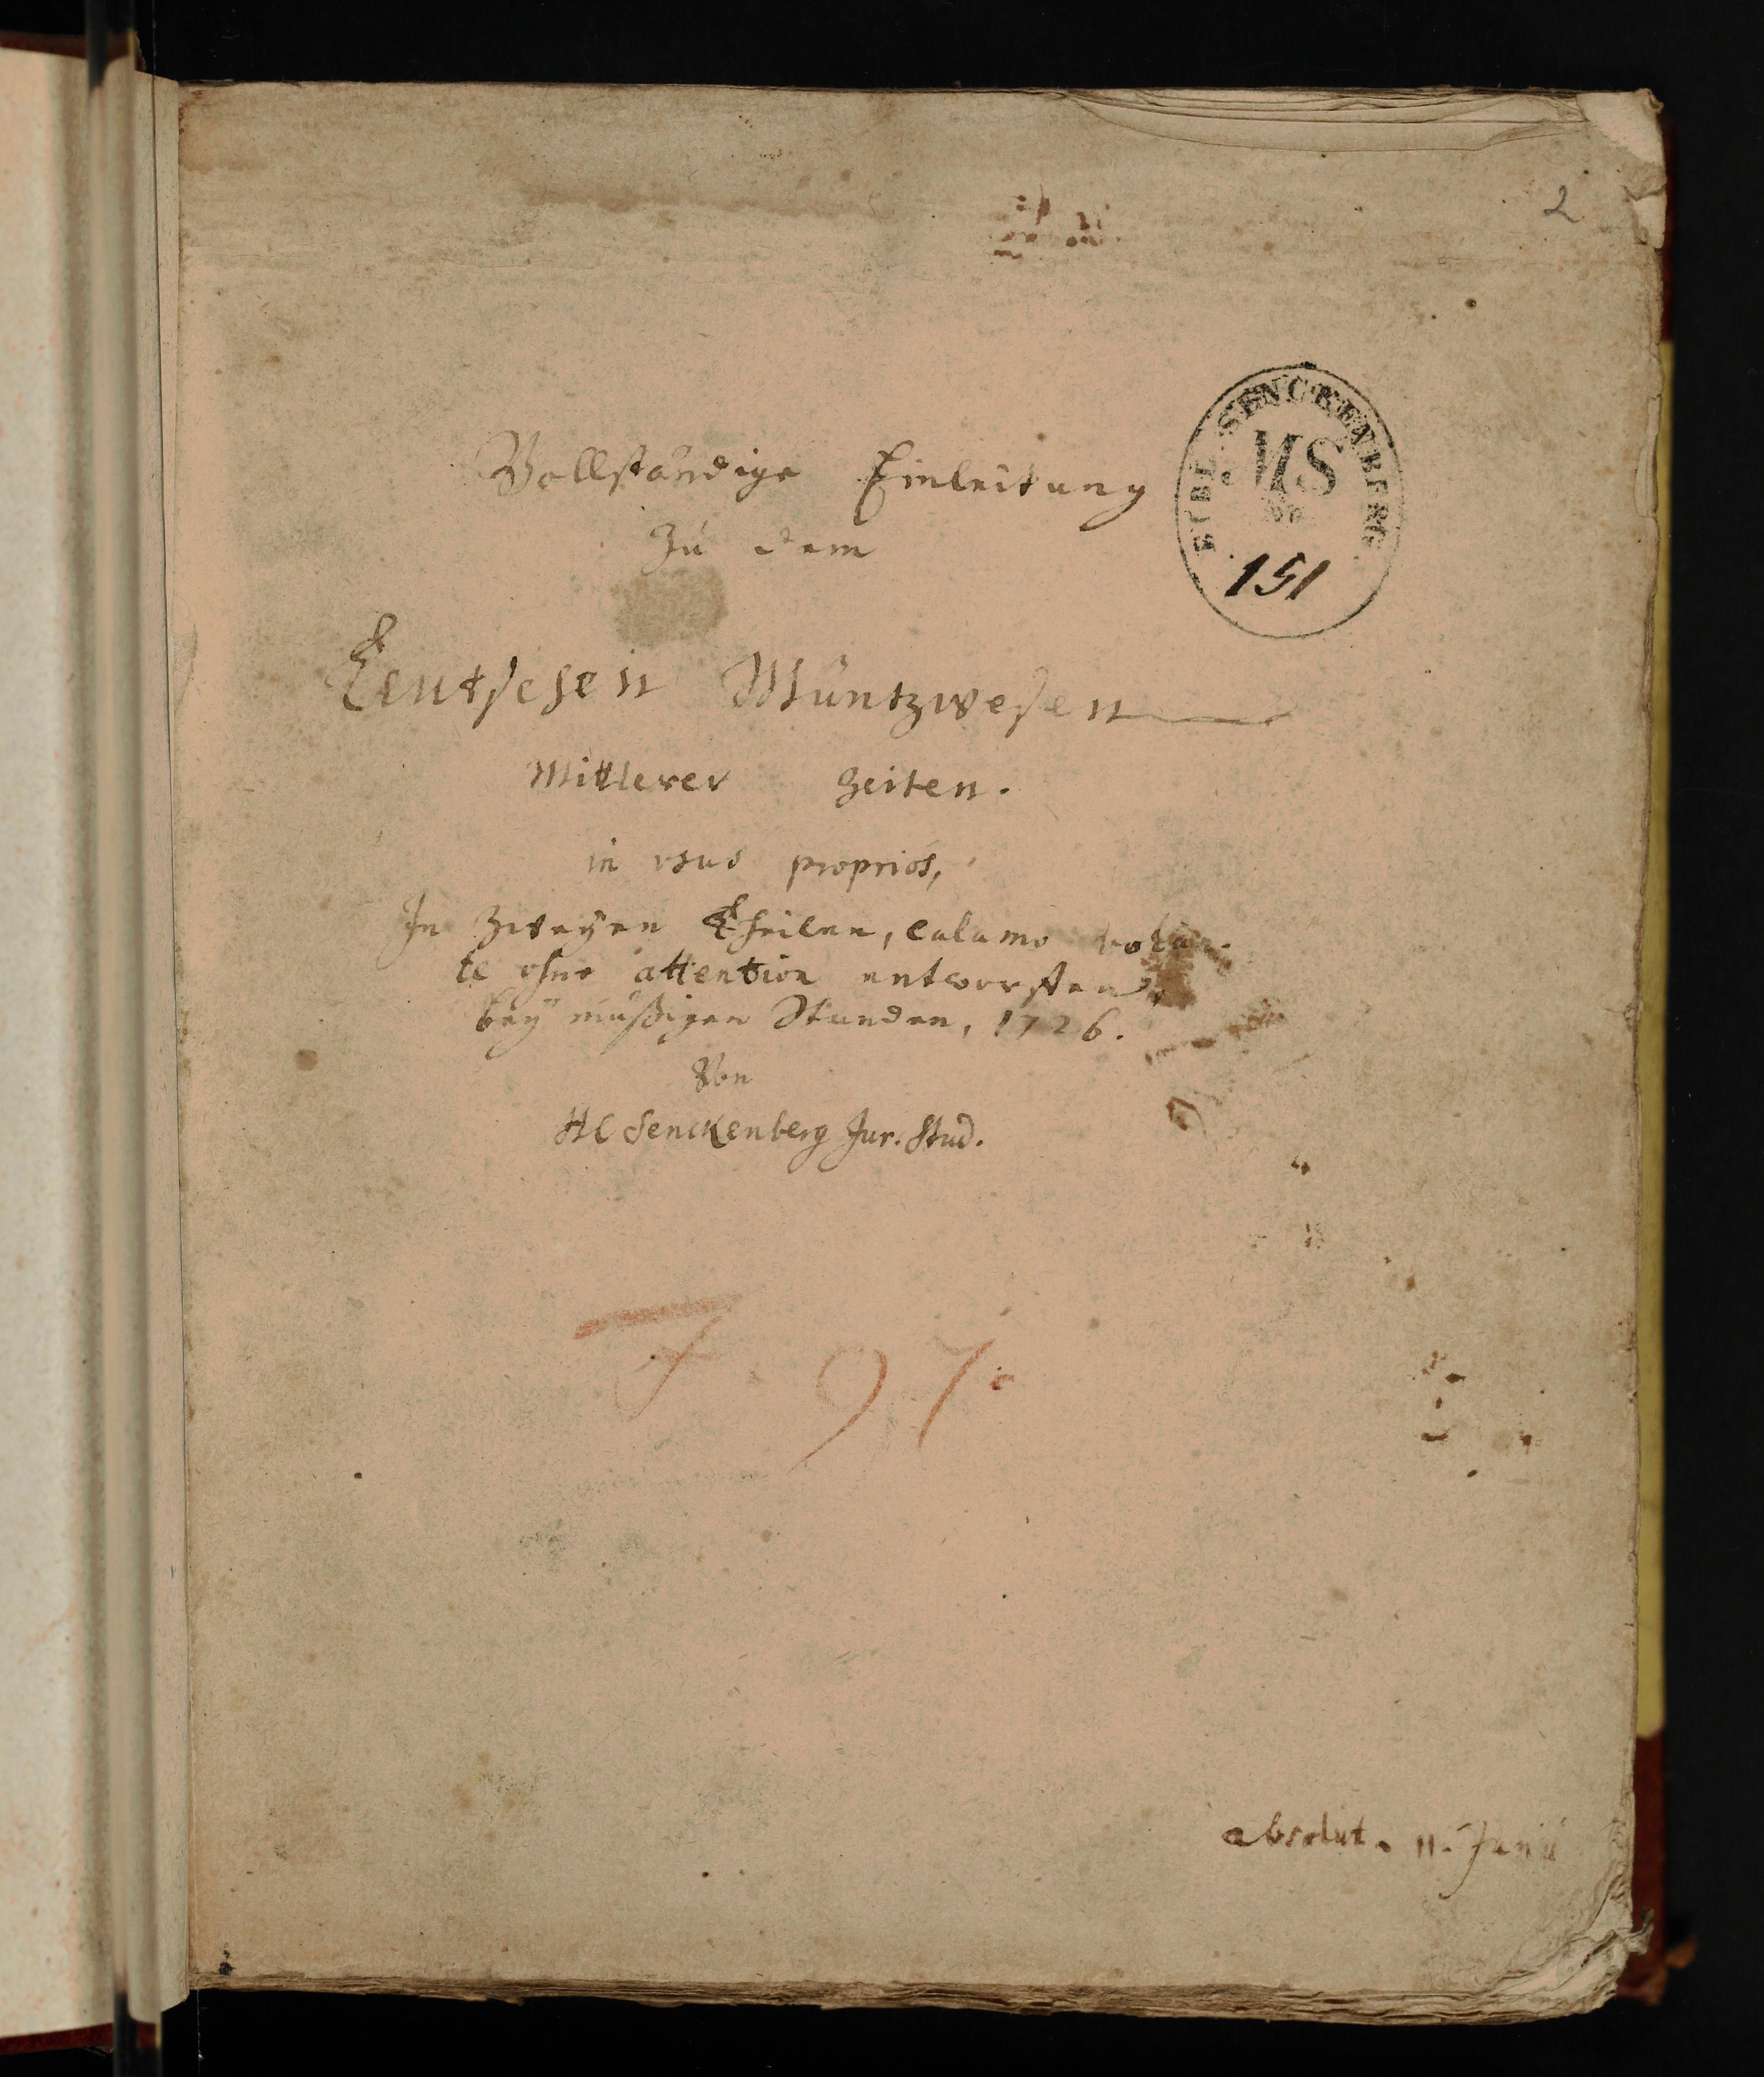 2
BIBL. SENCKENBERG
MS
151
Vollständige Einleitung
Zu dem
Teutschen Müntzwesen
Mittlerer Zeiten.
in usus proprios,
In Zweyen Theilen, calamo volan-
te ohne attention entworffen,
bey müßigen Stunden, 1726.
Von
HC Senckenberg Jur. Stud.
F 97.
absolut. 11. Junii